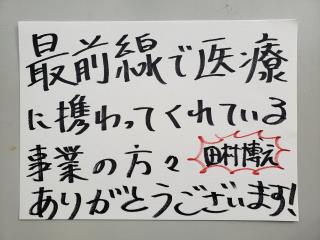 最前線で医療
に携わってくれている
事業の方々
田村博え
ありがとうございます!